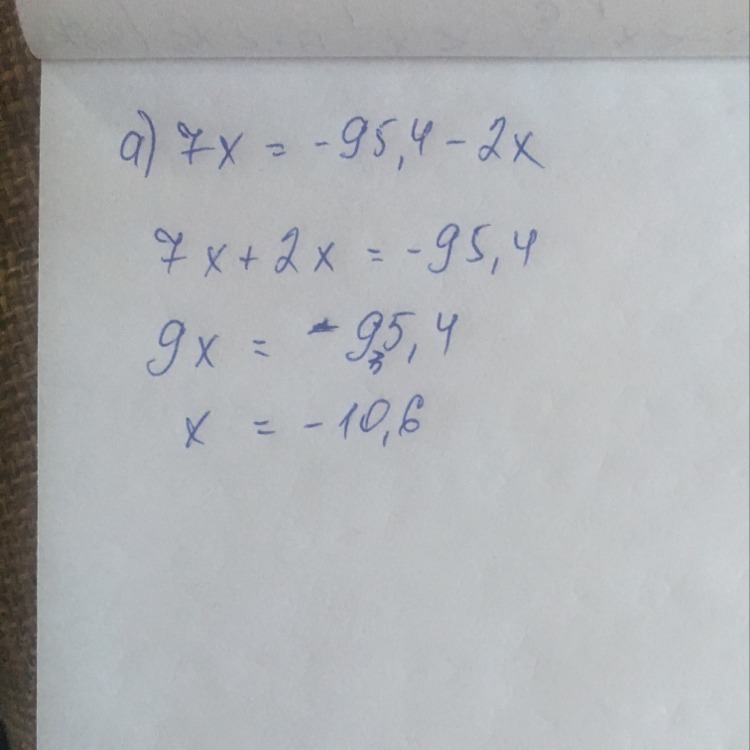 а) 7x = -95,4 - 2x
7x + 2x = -95,4
9x = -95,4
x = -10,6